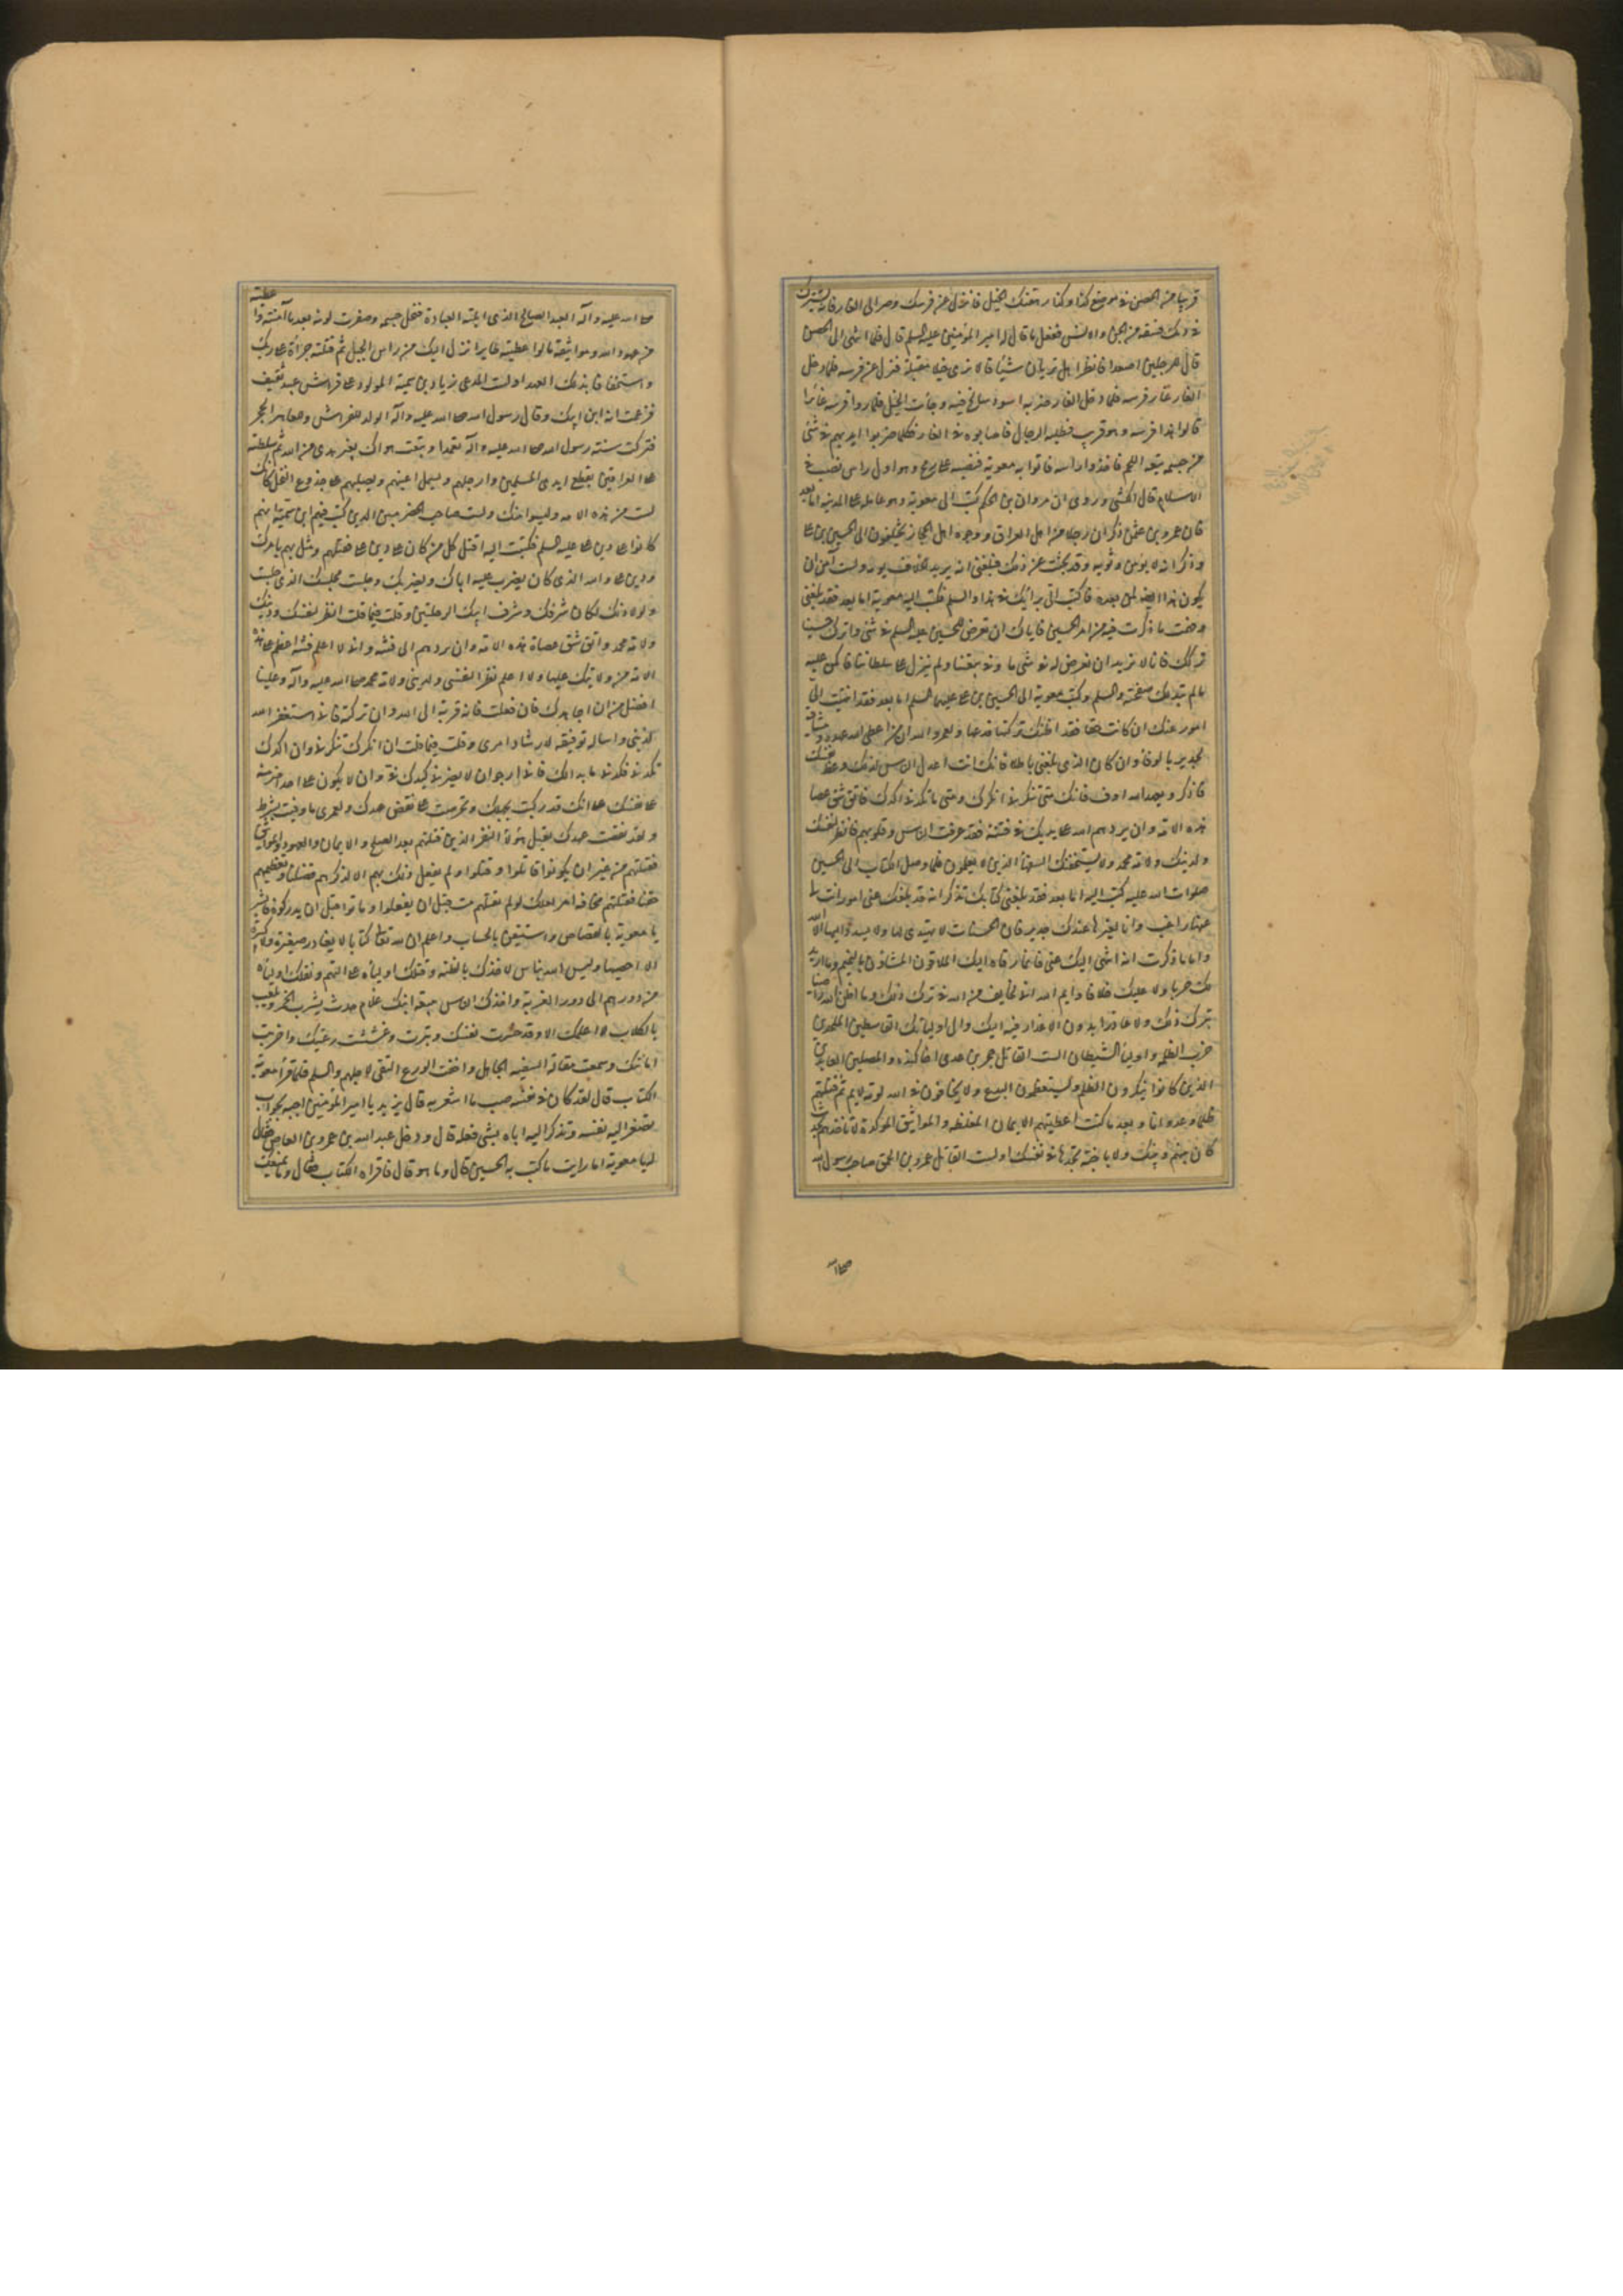 قريبا من الحصن في موضع كذا وكذا رهقتك الخيل فانزل عن فرسك ومر الى الغار فانه يشترك
في دمك فسقة من الجن والانس ففعل ما قال له امير المؤمنين عليه السلم قال فلما انتهى الى الحصن
قال للرجلين اصعدا فانظرا هل تريان شيئا قالا نرى خيلا مقبلة فنزل عن فرسه فلما دخل
الغار عار فرسه فلما دخل الغار ضربه اسود سالخ فيه وجائت الخيل فلما راوا فرسه غائرا
قالوا هذا فرسه وهو قريب فطلبه الرجال فاصابوه في الغار فكلما ضربوا ايديهم في شئ
من جسمه تبعه اللحم فاخذوا راسه فاتوا به معوية فنصبه على رمح وهو اول راس نصب في
الاسلام قال الكشي وروى ان مروان بن الحكم كتب الى معوية وهو عامله على المدينة اما بعد
فان عمرو بن عثمن ذكر ان رجالا من اهل العراق ووجوه اهل الحجاز يختلفون الى الحسين بن على
وذكر انه لا يؤمن وثوبه وقد بحثت عن ذلك فبلغني انه يريد الخلاف يومه ولست آمن ان
يكون هذا ايضا لمن بعده فاكتب الى برأيك في هذا والسلم فكتب اليه معوية اما بعد فقد بلغني
وفهمت ما ذكرت فيه من امر الحسين فاياك ان تعرض للحسين عليه السلم في شئ واترك حسينا
ما تركك فانا لا نريد ان نعرض له في شئ ما وفى ببيعتنا ولم ينزل على سلطاننا فاكمن عليه
ما لم يبد لك صفحته والسلم وكتب معوية الى الحسين بن على عليهما السلم اما بعد فقد انتهت الى
امور عنك ان كانت حقا فقد اظنك تركتها فدعها ولعمر والله ان من اعطى الله عهده وميثاقه
لجدير بالوفا وان كان الذي بلغني باطلا فانك انت اعدل الناس لذلك وعظ نفسك
فاذكر وبعهد الله اوف فانك متى تنكرني انكرك ومتى ما تكدني اكدك فاتق شق عصا
هذه الامة وان يردهم الله على يديك في فتنة فقد عرفت الناس وبلوتهم فانظر لنفسك
ولدينك ولامة محمد ولا يستخفنك السفهاء الذين لا يعلمون فلما وصل الكتاب الى الحسين
صلوات الله عليه كتب اليه اما بعد فقد بلغني كتابك تذكر انه قد بلغك عني امور انت لي
عنها راغب وانا لغيرها عندك جدير فان الحسنات لا يهتدى لها ولا يسدد اليها الا الله
واما ما ذكرت انه انتهى اليك عني فانما رقاه اليك الملاقون المشاؤن بالنميم وما اريد
لك حربا ولا عليك خلافا وايم الله انى لخايف من الله في ترك ذلك وما اظن الله راضيا
بترك ذلك ولا عاذرا بدون الاعذار فيه اليك والى اولياتك القاسطين الملحدين
حزب الظلمة واولياء الشيطان الست القاتل حجر بن عدى اخا كندة والمصلين العابدين
الذين كانوا ينكرون الظلم ويستعظمون البدع ولا يخافون في الله لومة لايم ثم قتلتهم
ظلما وعدوانا من بعد ما كنت اعطيتهم الايمان المغلظة والمواثيق الموكدة لا تاخذهم بحدث
كان بينهم وبينك ولا باحنة تجدها في نفسك اولست القاتل عمرو بن الحمق صاحب رسول الله
صلى الله
صلى الله عليه وآله العبد الصالح الذي ابلته العبادة فنحل جسمه وصفرت لونه بعد ما آمنته واعطيته
من عهود الله ومواثيقه ما لو اعطيته طايرا لنزل اليك من راس الجبل ثم قتلته جرأة على ربك
واستخفافا بذلك العهد اولست المدعى زياد بن سمية المولود على فراش عبد ثقيف
فزعمت انه ابن ابيك وقال رسول الله صلى الله عليه وآله الولد للفراش وللعاهر الحجر
فتركت سنة رسول الله صلى الله عليه وآله تعمدا وتبعت هواك بغير هدى من الله ثم سلطته
على العراقين يقطع ايدى المسلمين وارجلهم ويسمل اعينهم ويصلبهم على جذوع النخل كانك
لست من هذه الامة وليسوا منك اولست صاحب الحضرميين الذين كتب فيهم ابن سمية انهم
كانوا على دين على عليه السلم فكتبت اليه اقتل كل من كان على دين على فقتلهم ومثل بهم بامرك
ودين على والله الذي كان يضرب عليه اباك ويضربك وجلست مجلسك الذي جلست
ولولا ذلك لكان شرفك وشرف ابيك الرحلتين وقلت فيما قلت انظر لنفسك ولدينك
ولامة محمد واتق شق عصاة هذه الامة وان تردهم الى فتنة وانى لا اعلم فتنة اعظم على هذه
الامة من ولايتك عليها ولا اعلم نظرا لنفسي ولديني ولامة محمد صلى الله عليه وآله وعلينا
افضل من ان اجاهدك فان فعلت فانه قربة الى الله وان تركته فانى استغفر الله
لذنبي واساله توفيقه لارشاد امرى وقلت فيما قلت ان انكرتك تنكرني وان اكدك
تكدني فكدني ما بدا لك فانى ارجو ان لا يضرني كيدك في وان لا يكون على احد اضر منه
على نفسك على انك قد ركبت بجهلك وتحرصت على نقض عهدك ولعمرى ما وفيت بشرط
ولقد نقضت عهدك بقتل هؤلاء النفر الذين قتلتهم بعد الصلح والايمان والعهود والمواثيق
فقتلتهم من غير ان يكونوا قاتلوا وقتلوا ولم يفعل ذلك بهم الا لذكرهم فضلنا وتعظيمهم
حقنا فقتلتهم مخافة امر لعلك لو لم تقتلهم مت قبل ان يفعلوا وماتوا قبل ان يدركوه فابشر
يا معوية بالقصاص واستيقن بالحساب واعلم ان لله تعالى كتابا لا يغادر صغيرة ولا كبيرة
الا احصيها وليس الله بناس لاخذك بالظنة وقتلك اولياءه على التهم ونفيك اولياءه
من دورهم الى دور الغربة واخذك الناس ببيعة ابنك غلام حدث يشرب الخمر ويلعب
بالكلاب لا اعلمك الا وقد خسرت نفسك وبترت وغششت رعيتك واخربت
امانتك وسمعت مقالة السفيه الجاهل واخفت الورع التقى لاجلهم والسلم فلما قرأ معوية
الكتاب قال لقد كان في نفسه ضب ما اشعر به قال يزيد يا امير المؤمنين اجبه بجواب
تصغر اليه نفسه وتذكر اليه اباه بشئ فعله قال ودخل عبد الله بن عمرو بن العاص فقال
له يا معوية اما رايت ما كتب به الحسين قال وما هو قال فاقراه الكتاب فقال وما يمنعك